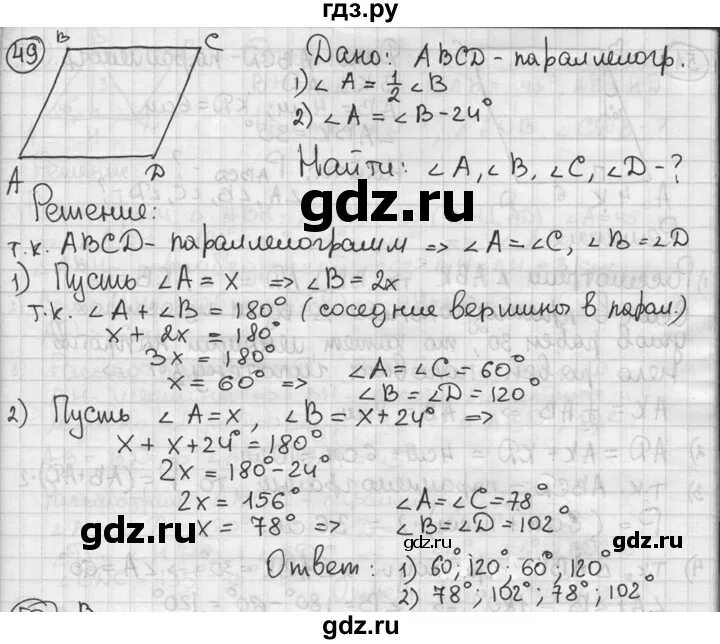 гдз.ру
49
B C
A D
Дано: ABCD - параллелогр.
1) ∠A = 1/2 ∠B
2) ∠A = ∠B - 24°
Найти: ∠A, ∠B, ∠C, ∠D - ?
gdz.ru
Решение:
т.к. ABCD - параллелограмм => ∠A = ∠C, ∠B = ∠D
1) Пусть ∠A = x => ∠B = 2x
т.к. ∠A + ∠B = 180° (соседние вершины в парал.)
x + 2x = 180°
3x = 180°
x = 60° => ∠A = ∠C = 60°
∠B = ∠D = 120°
2) Пусть ∠A = x, ∠B = x + 24° =>
x + x + 24° = 180°
2x = 180° - 24°
2x = 156° ∠A = ∠C = 78°
x = 78° => ∠B = ∠D = 102°
gdz.ru
gdz.ru gdz.ru
Ответ: 1) 60°; 120°; 60°; 120°
2) 78°; 102°; 78°; 102°
B
gdz.ru